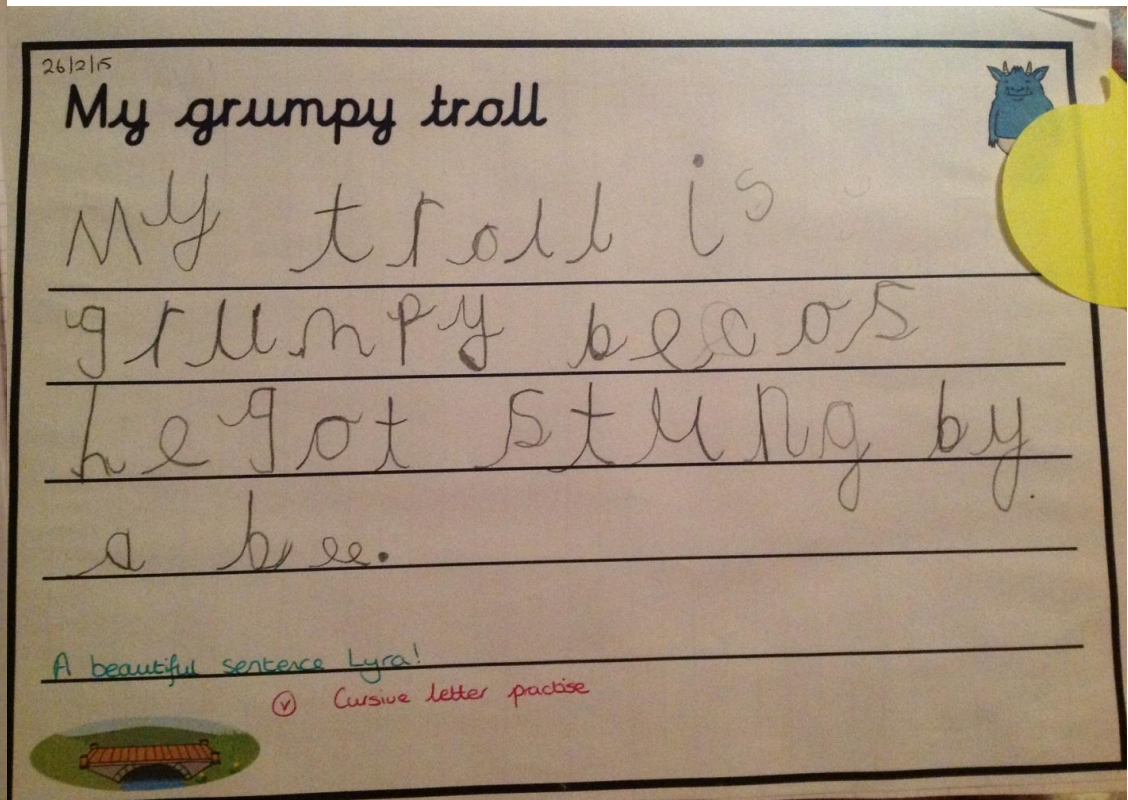 26/2/15
My grumpy troll
My troll is
grunpy becos
he got stung by.
a bee.
A beautiful sentence Lyra!
v Cursive letter practise